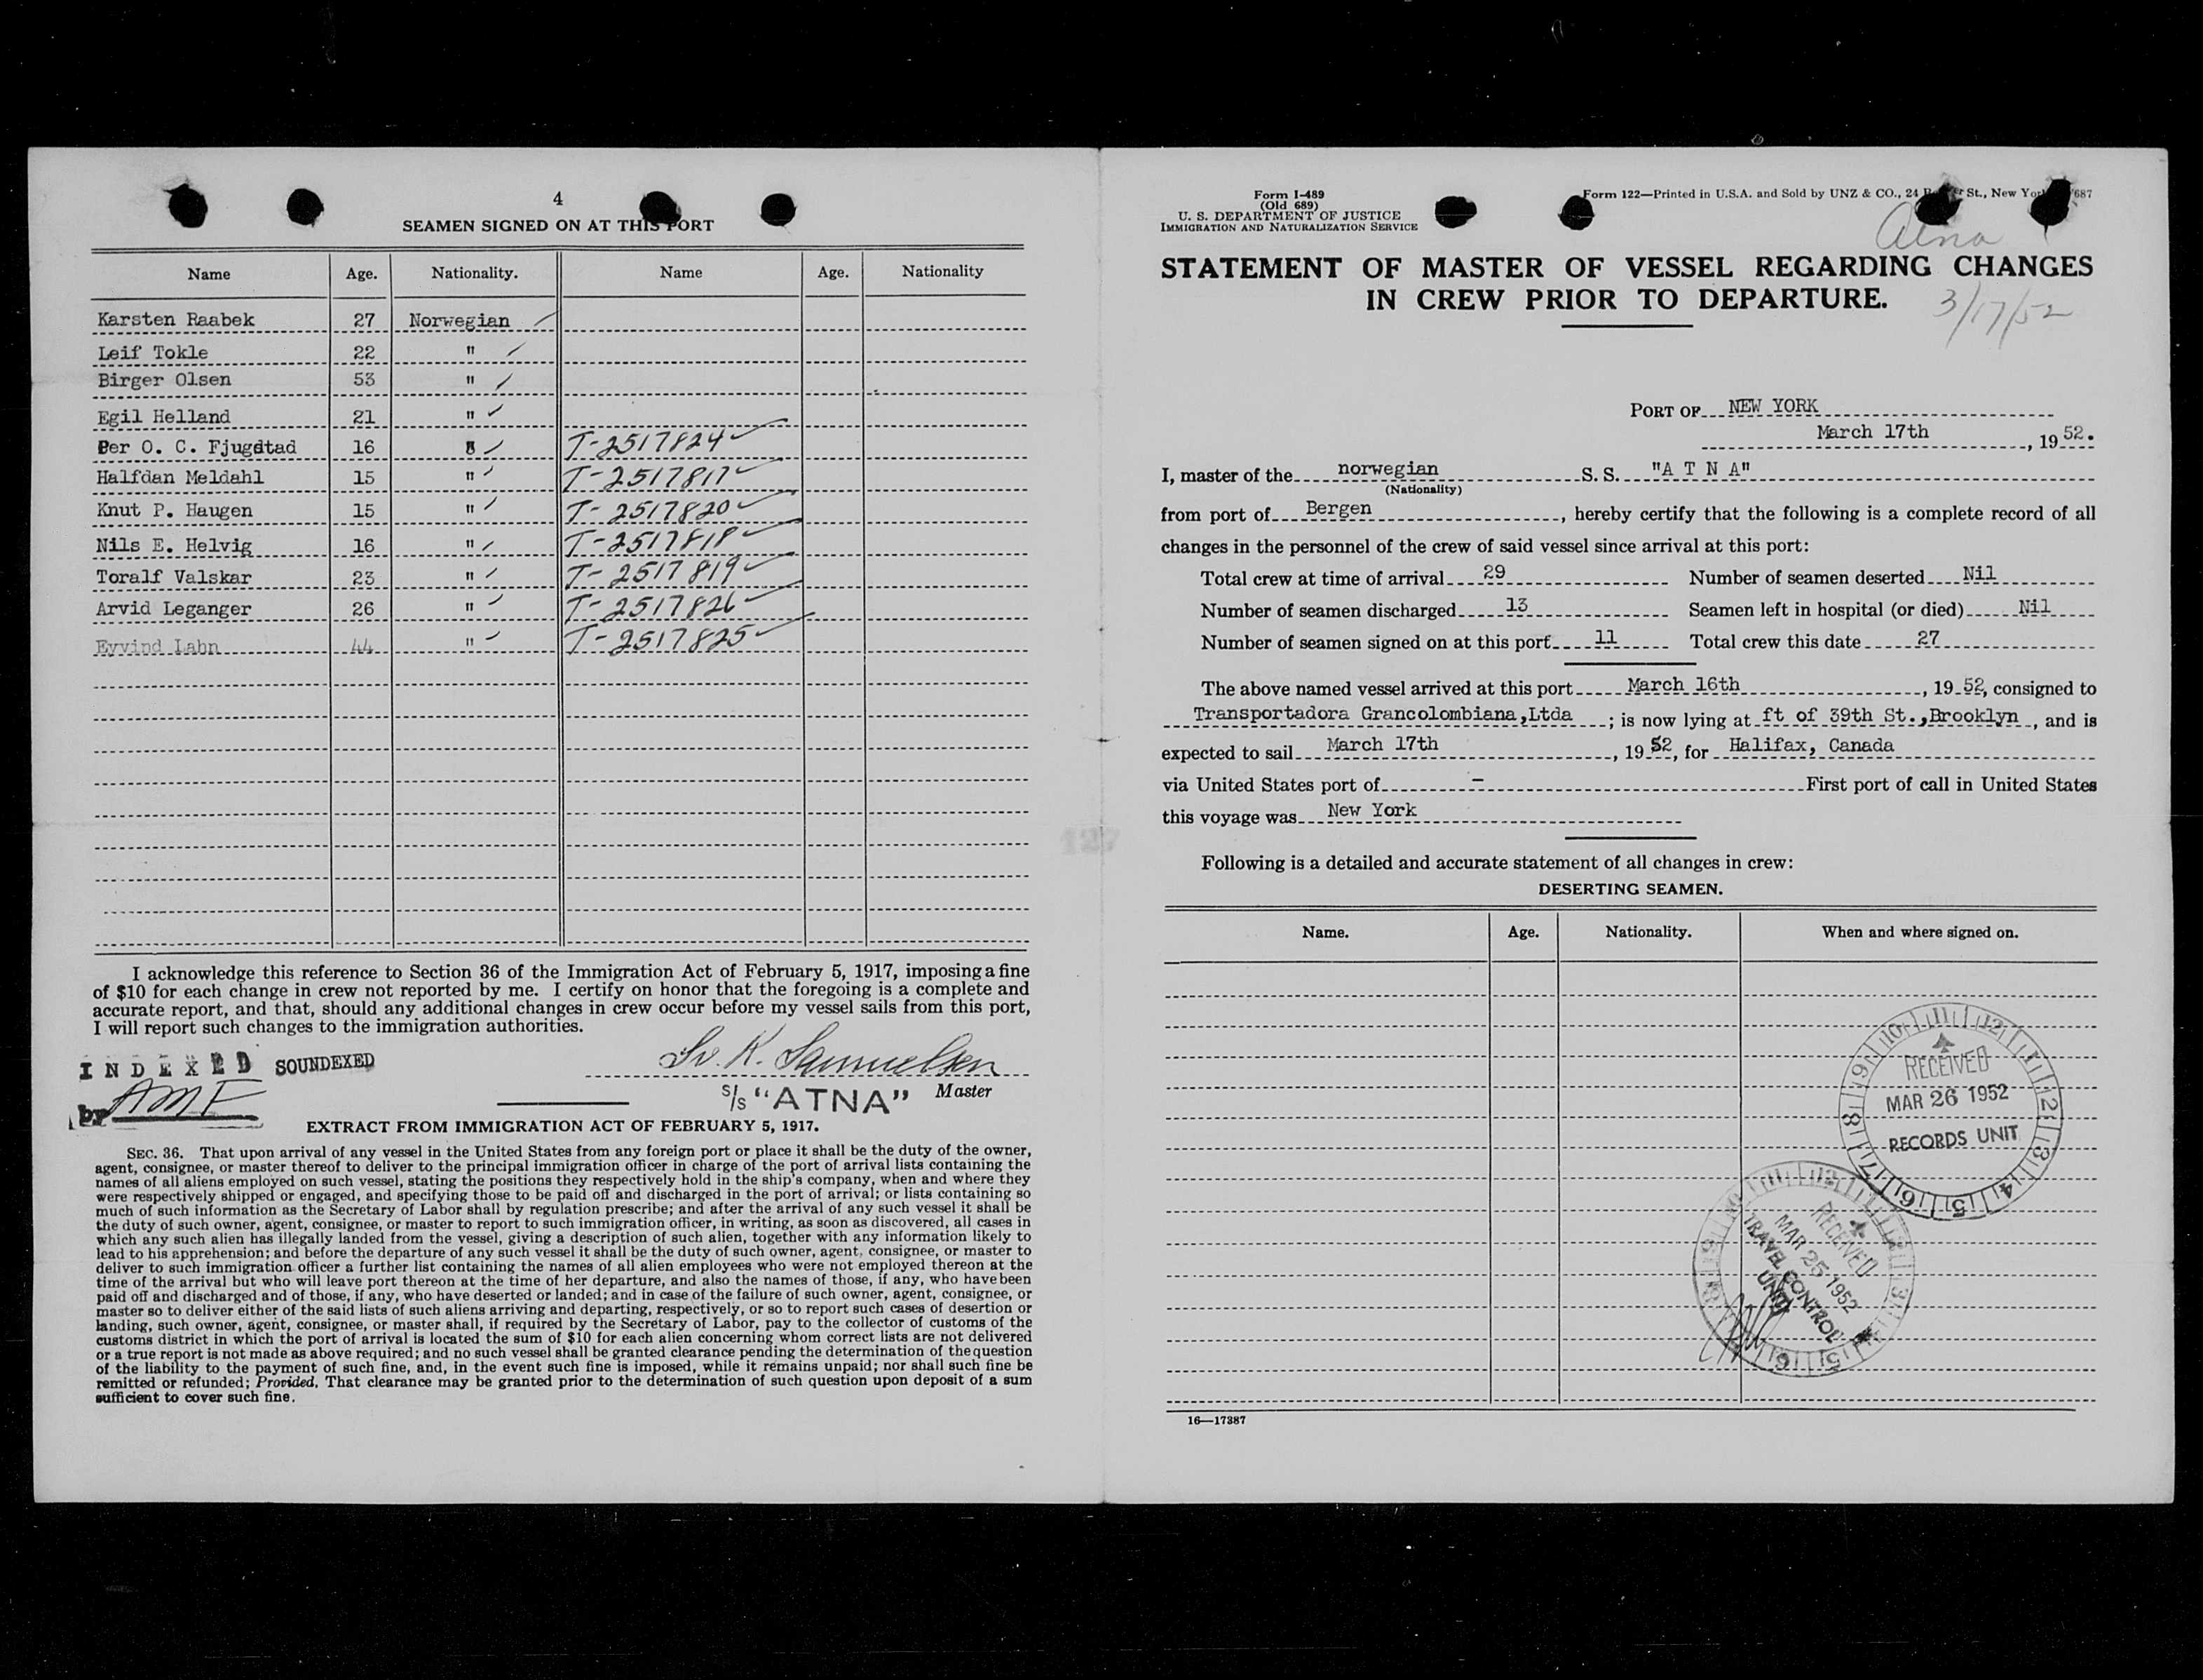 4
SEAMEN SIGNED ON AT THIS PORT
Name Age. Nationality. Name Age. Nationality
Karsten Raabek 27 Norwegian
Leif Tokle 22 "
Birger Olsen 53 "
Egil Helland 21 "
Per O. C. Fjugstad 16 " T-2517824
Halfdan Meldahl 15 " T-2517817
Knut P. Haugen 15 " T-2517820
Nils E. Helvig 16 " T-2517818
Toralf Valskar 23 " T-2517819
Arvid Leganger 26 " T-2517826
Eyvind Lahn 44 " T-2517825
I acknowledge this reference to Section 36 of the Immigration Act of February 5, 1917, imposing a fine
of $10 for each change in crew not reported by me. I certify on honor that the foregoing is a complete and
accurate report, and that, should any additional changes in crew occur before my vessel sails from this port,
I will report such changes to the immigration authorities.
INDEXED SOUNDEXED
by AMF
Sv. K. Samuelsen
S/S "ATNA" Master
EXTRACT FROM IMMIGRATION ACT OF FEBRUARY 5, 1917.
SEC. 36. That upon arrival of any vessel in the United States from any foreign port or place it shall be the duty of the owner,
agent, consignee, or master thereof to deliver to the principal immigration officer in charge of the port of arrival lists containing the
names of all aliens employed on such vessel, stating the positions they respectively hold in the ship's company, when and where they
were respectively shipped or engaged, and specifying those to be paid off and discharged in the port of arrival; or lists containing so
much of such information as the Secretary of Labor shall by regulation prescribe; and after the arrival of any such vessel it shall be
the duty of such owner, agent, consignee, or master to report to such immigration officer, in writing, as soon as discovered, all cases in
which any such alien has illegally landed from the vessel, giving a description of such alien, together with any information likely to
lead to his apprehension; and before the departure of any such vessel it shall be the duty of such owner, agent, consignee, or master to
deliver to such immigration officer a further list containing the names of all alien employees who were not employed thereon at the
time of the arrival but who will leave port thereon at the time of her departure, and also the names of those, if any, who have been
paid off and discharged and of those, if any, who have deserted or landed; and in case of the failure of such owner, agent, consignee, or
master so to deliver either of the said lists of such aliens arriving and departing, respectively, or so to report such cases of desertion or
landing, such owner, agent, consignee, or master shall, if required by the Secretary of Labor, pay to the collector of customs of the
customs district in which the port of arrival is located the sum of $10 for each alien concerning whom correct lists are not delivered
or a true report is not made as above required; and no such vessel shall be granted clearance pending the determination of the question
of the liability to the payment of such fine, and, in the event such fine is imposed, while it remains unpaid; nor shall such fine be
remitted or refunded; Provided, That clearance may be granted prior to the determination of such question upon deposit of a sum
sufficient to cover such fine.
Form I-489
(Old 689)
U. S. DEPARTMENT OF JUSTICE
IMMIGRATION AND NATURALIZATION SERVICE
Form 122—Printed in U.S.A. and Sold by UNZ & CO., 24 St., New York 687
Atna
STATEMENT OF MASTER OF VESSEL REGARDING CHANGES
IN CREW PRIOR TO DEPARTURE.
3/17/52
PORT OF NEW YORK
March 17th, 1952.
I, master of the norwegian S. S. "A T N A"
(Nationality)
from port of Bergen, hereby certify that the following is a complete record of all
changes in the personnel of the crew of said vessel since arrival at this port:
Total crew at time of arrival 29 Number of seamen deserted Nil
Number of seamen discharged 13 Seamen left in hospital (or died) Nil
Number of seamen signed on at this port 11 Total crew this date 27
The above named vessel arrived at this port March 16th, 1952, consigned to
Transportadora Grancolombiana,Ltda; is now lying at ft of 39th St.,Brooklyn, and is
expected to sail March 17th, 1952, for Halifax, Canada
via United States port of - First port of call in United States
this voyage was New York
Following is a detailed and accurate statement of all changes in crew:
DESERTING SEAMEN.
Name. Age. Nationality. When and where signed on.
RECEIVED
MAR 26 1952
RECORDS UNIT
RECEIVED
MAR 25 1952
TRAVEL CONTROL
UNIT
16—17387